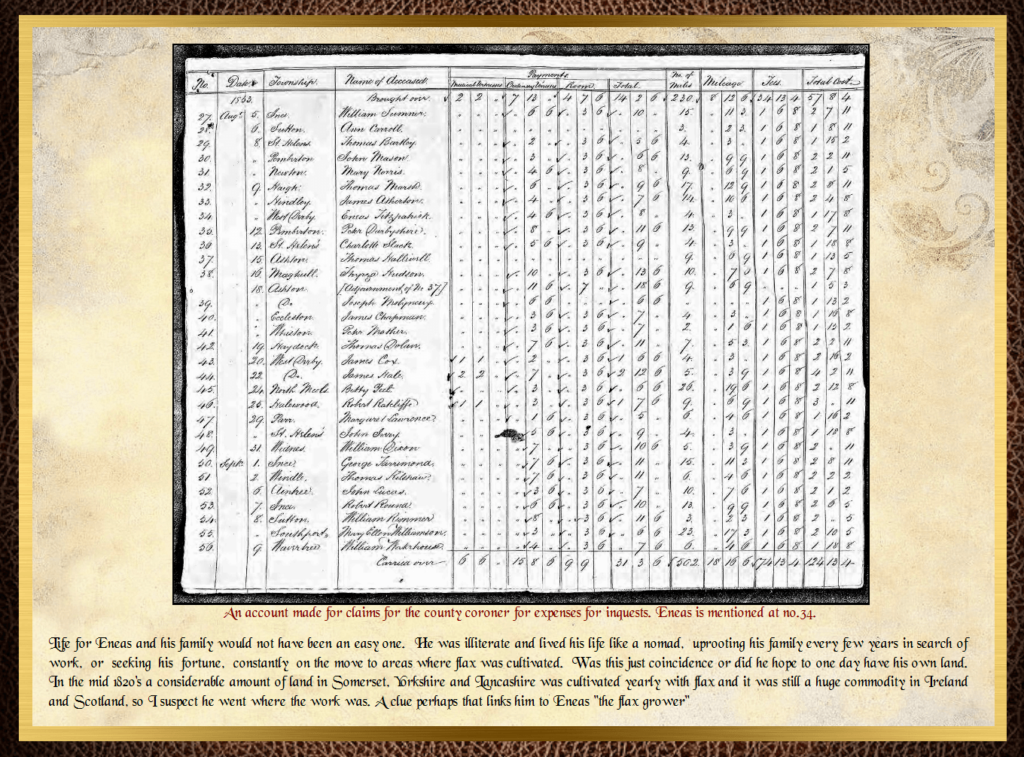 No. Date Township. Name of Deceased. Payments No. of Miles Mileage Fees. Total Cost.
Room Total
1863. Brought over 2 2 " 7 13 " 4 7 6 14 2 6 230 8 12 6 34 13 4 57 8 4
27. Augt. 5. Ince. William Sumner. 6 6 3 6 10 15 11 3 1 6 8 2 7 11
28. 6. Sutton. Ann Carroll. 3. 2 3 1 6 8 1 8 11
29. 8. St. Helens. Thomas Barkley. 2 3 6 5 6 4. 3 1 6 8 1 15 2
30. " Pemberton John Mason. 3 3 6 6 6 13. 9 9 1 6 8 2 2 11
31. " Newton. Mary Norris. 4 6 3 6 8 9. 6 9 1 6 8 2 1 5
32. 9. Haigh. Thomas Marsh. 6 3 6 9 6 17. 12 9 1 6 8 2 8 11
33. " Hindley. James Atherton. 4 3 6 7 6 14. 10 6 1 6 8 2 4 8
34. " West Derby. Eneas Fitzpatrick. 4 6 3 6 8 4. 3 1 6 8 1 17 8
35. 12. Pemberton. Peter Darbyshire. 8 3 6 11 6 13. 9 9 1 6 8 2 7 11
36 13. St. Helens Charlotte Slack. 5 6 3 6 9 4. 3 1 6 8 1 18 8
37. 15 Ashton. Thomas Halliwell 9. 6 9 1 6 8 1 13 5
38. 16. Maghull. Hudson. 10 3 6 13 6 10. 7 3 1 6 8 2 7 8
18. Ashton. [Adjournment of No. 37.] 11 6 7 18 6 9. 6 9 1 5 3
39. " Do. Joseph 6 6 6 6 1 6 8 1 13 2
40. " Eccleston James Chapman. 3 6 3 6 7 4 3 1 6 8 1 16 8
41. " Whiston. Peter Mather. 3 6 3 6 7 2. 1 6 1 6 8 1 15 2
42. 19. Haydock. Thomas Dolan. 7 6 3 6 11 7. 5 3 1 6 8 2 2 11
43. 20. West Derby. James Cox. 1 1 2 3 6 1 6 6 4. 3 1 6 8 2 16 2
44. 22. Do. James Hale. 2 2 7 3 6 2 12 6 5. 3 9 1 6 8 4 2 11
45. 24. North Meols Betty 3 3 6 6 6 26. 19 6 1 6 8 2 12 8
46. 25. Halewood. Robert Ratcliffe. 1 1 3 3 6 1 7 6 9. 6 9 1 6 8 3 " 11
47 29. Parr. Margaret Lawrence. 1 6 3 6 5 6. 4 6 1 6 8 1 16 2
48. " St. Helens John 5 6 3 6 9 4. 3 1 6 8 1 18 8
49. 31. Widnes. William Dixon 7 3 6 10 6 5. 3 9 1 6 8 2 " 11
50. Septr. 1. Ince. George 7 6 3 6 11 15. 11 3 1 6 8 2 8 11
51 2. Windle. Thomas 7 6 3 6 11 6. 4 6 1 6 8 2 2 2
52 6. Aintree. John Lucas. 3 6 3 6 7 10. 7 6 1 6 8 2 1 2
53. 7. Ince. Robert Round. 6 6 3 6 10 13. 9 9 1 6 8 2 6 5
54. 8. Sutton. William Rimmer 8 3 6 11 6 3. 2 3 1 6 8 2 " 5
55. " Southport. Mary Ellen Williamson. 3 3 6 6 6 23. 17 3 1 6 8 2 10 5
56. 9. Wavertree William 4 3 6 7 6 6. 4 6 1 6 8 1 18 8
Carried over 6 6 " 15 8 6 9 9 " 31 3 6 502. 18 16 6 74 13 4 124 13 4
An account made for claims for the county coroner for expenses for inquests. Eneas is mentioned at no.34.
Life for Eneas and his family would not have been an easy one. He was illiterate and lived his life like a nomad, uprooting his family every few years in search of
work, or seeking his fortune, constantly on the move to areas where flax was cultivated. Was this just coincidence or did he hope to one day have his own land.
In the mid 1820's a considerable amount of land in Somerset, Yorkshire and Lancashire was cultivated yearly with flax and it was still a huge commodity in Ireland
and Scotland, so I suspect he went where the work was. A clue perhaps that links him to Eneas "the flax grower"